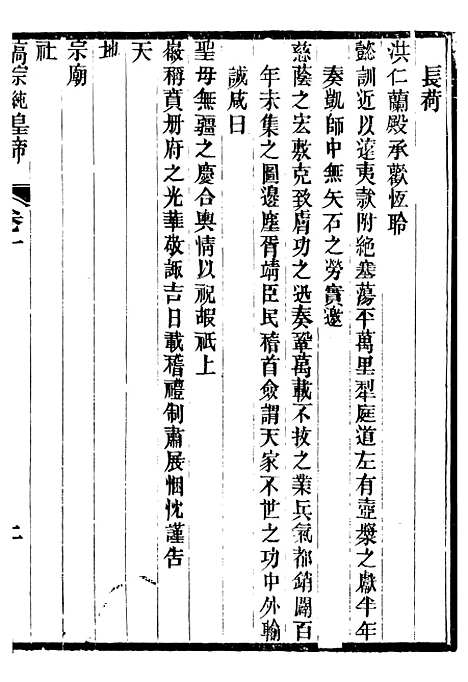 長荷
洪仁蘭殿承歡恆聆
懿訓近以遠夷款附絶塞蕩平萬里犁庭道左有壺漿之獻半年
奏凱師中無矢石之勞實邀
慈蔭之宏敷克致膚功之迅奏鞏萬載不拔之業兵氣都銷闢百
年未集之圖邊塵胥靖臣民稽首僉謂天家不世之功中外輸
誠咸曰
聖母無疆之慶合輿情以祝嘏祗上
徽稱賁册府之光華敬諏吉日載稽禮制肅展悃忱謹告
天
地
宗廟
社
高宗純皇帝 卷一 二